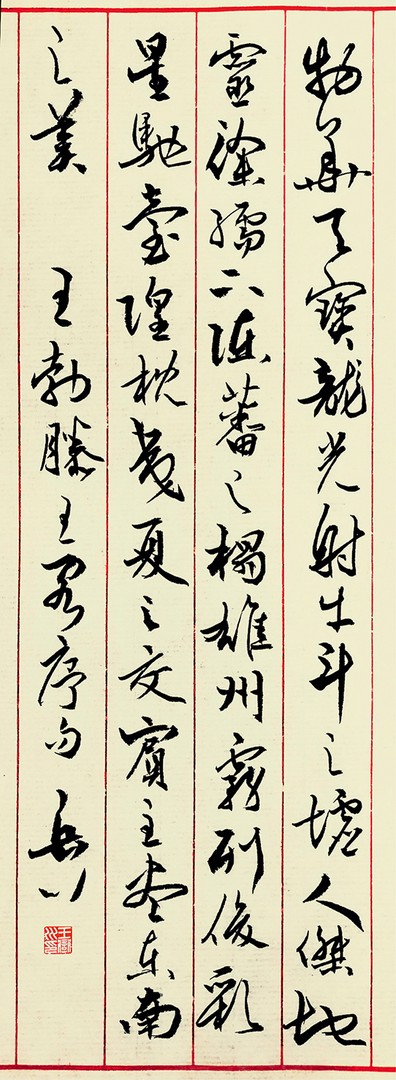 物華天寶龍光射牛斗之墟人傑地
靈徐孺下陳蕃之榻雄州霧列俊彩
星馳臺隍枕夷夏之交賓主盡東南
之美 王勃滕王閣序句